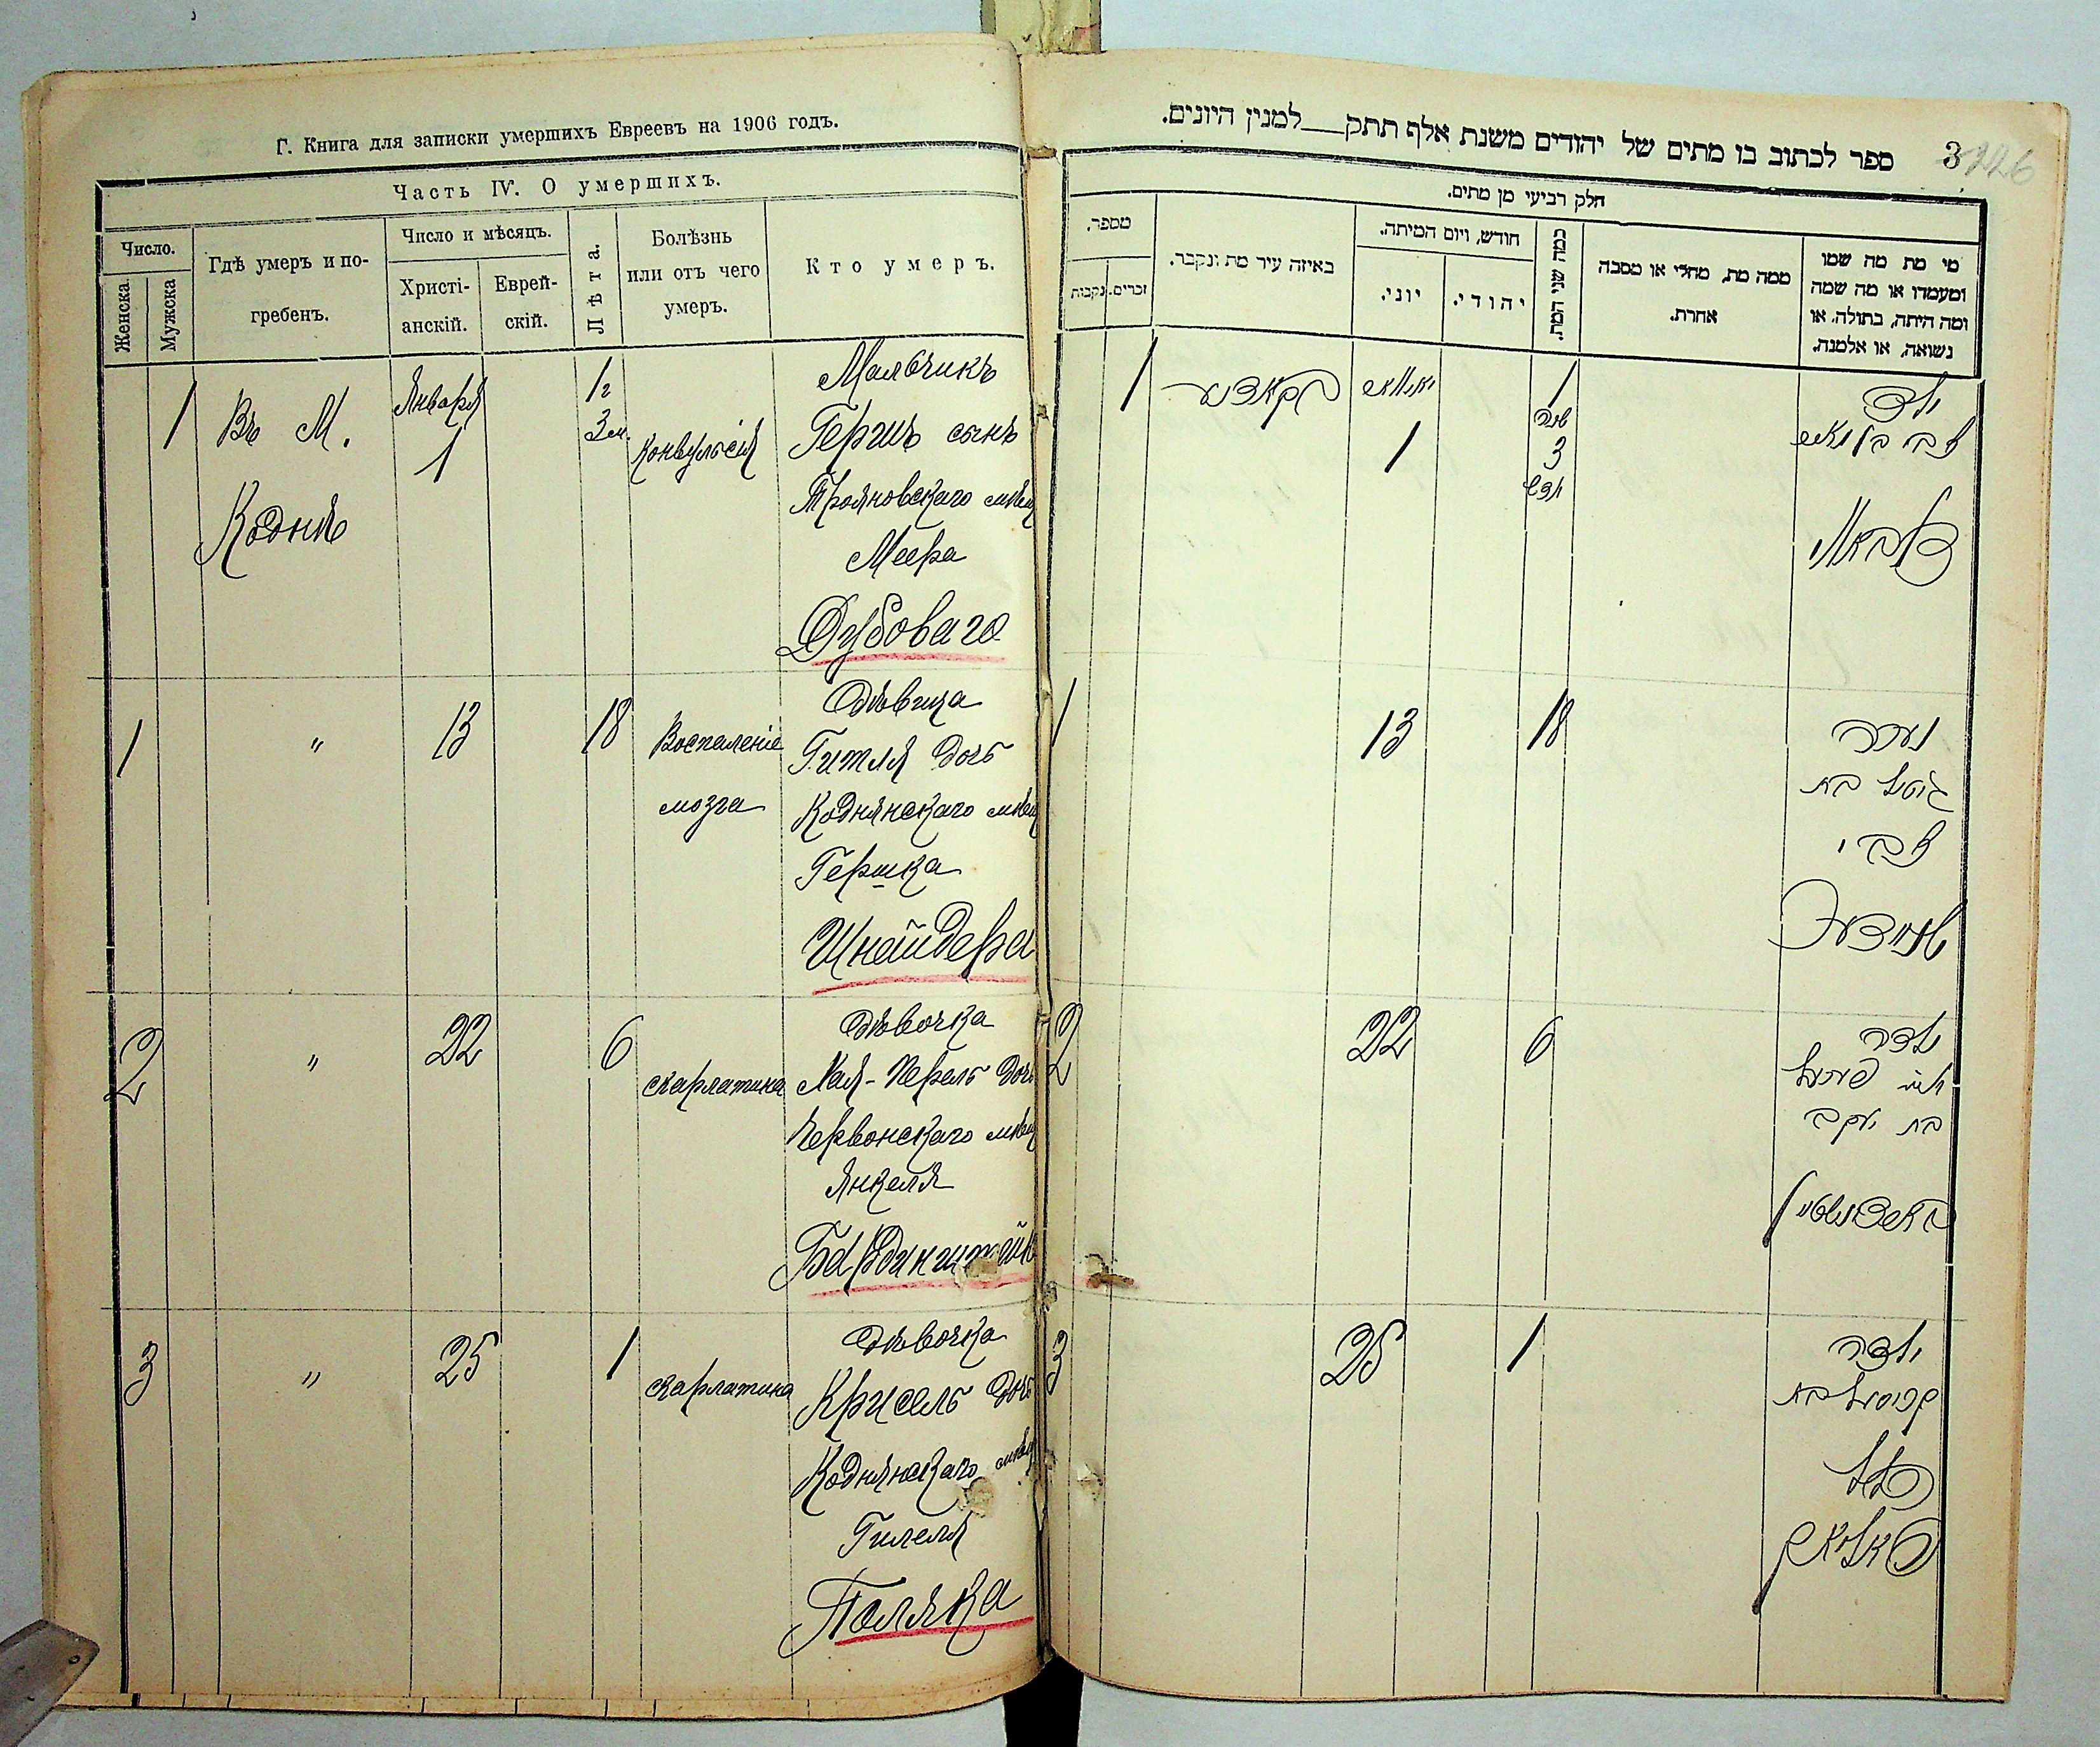 Г. Книга для записки умершихъ Евреевъ на 1906 годъ.
Часть IV. О умершихъ.
Число.
Женска.
Мужска
Гдѣ умеръ и по-
гребенъ.
Число и мѣсяцъ.
Христі-
анскій.
Еврей-
скій.
Лѣта.
Болѣзнь
или отъ чего
умеръ.
Кто умеръ.
1
Въ М.
Кодня
Января
1
1/2
3 м.
Конвульсія
Мальчикъ
Гершъ сынъ
Трояновскаго мѣщ
Меера
Дубоваго
1
"
13
18
Воспаленіе
мозга
Дѣвица
Гитля дочь
Коднянскаго мѣщ
Гершка
Шнайдера
2
"
22
6
скарлатина
Дѣвочка
Хая-Перель дочь
Червонскаго мѣщ
Янкеля
3
"
25
1
скарлатина
Дѣвочка
Крисель дочь
Коднянскаго мѣщ
Гилеля
Поляка
ספר לכתוב בו מתים של יהודים משנת אלף תתק למנין היונים.
3
226
חלק רביעי מן מתים.
מספר.
נקבות
זכרים.
באיזה עיר מת ונקבר.
חודש, ויום המיתה.
יוני.
יהודי.
כמה שני המת.
ממה מת, מחלי או מסבה
אחרת.
מי מת מה שמו
ומעמדו או מה שמה
ומה היתה, בתולה, או
נשואה, או אלמנה.
1
1
1
שנה
3
חדש
ילד
1
13
18
נערה
גיטל בת
צבי
שניידער
2
22
6
ילדה
חי' פערל
בת יעקב
3
25
1
ילדה
קריסעל בת
הלל
פאליאק